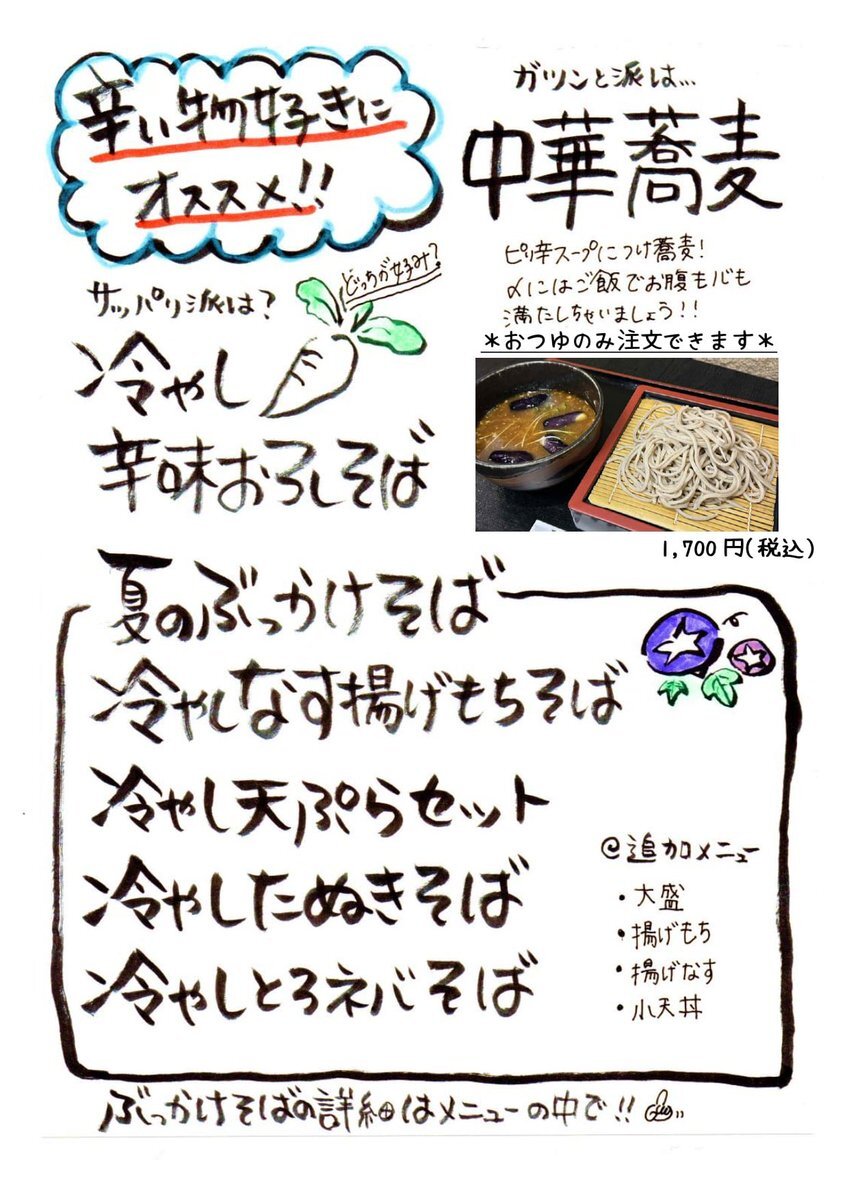 辛い物好きに
オススメ!!
どっちが好み?
サッパリ派は?
冷やし
辛味おろしそば
ガツンと派は…
中華蕎麦
ピリ辛スープにつけ蕎麦!
〆にはご飯でお腹も心も
満たしちゃいましょう!!
*おつゆのみ注文できます*
1,700円(税込)
夏のぶっかけそば
冷やしなす揚げもちそば
冷やし天ぷらセット
冷やしたぬきそば
冷やしとろネバそば
@追加メニュー
・大盛
・揚げもち
・揚げなす
・小天丼
ぶっかけそばの詳細はメニューの中で!!